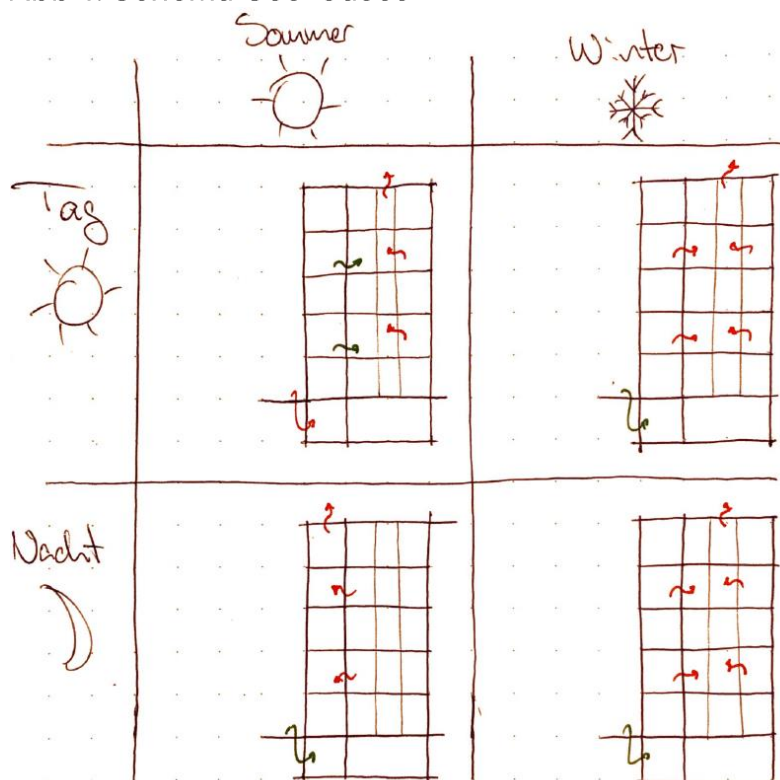 Sommer
Winter
Tag
Nacht